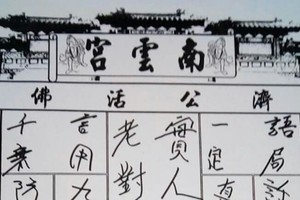 南雲宮
濟公活佛
語局訴
一定真
實人
老對
言用九
千乘防